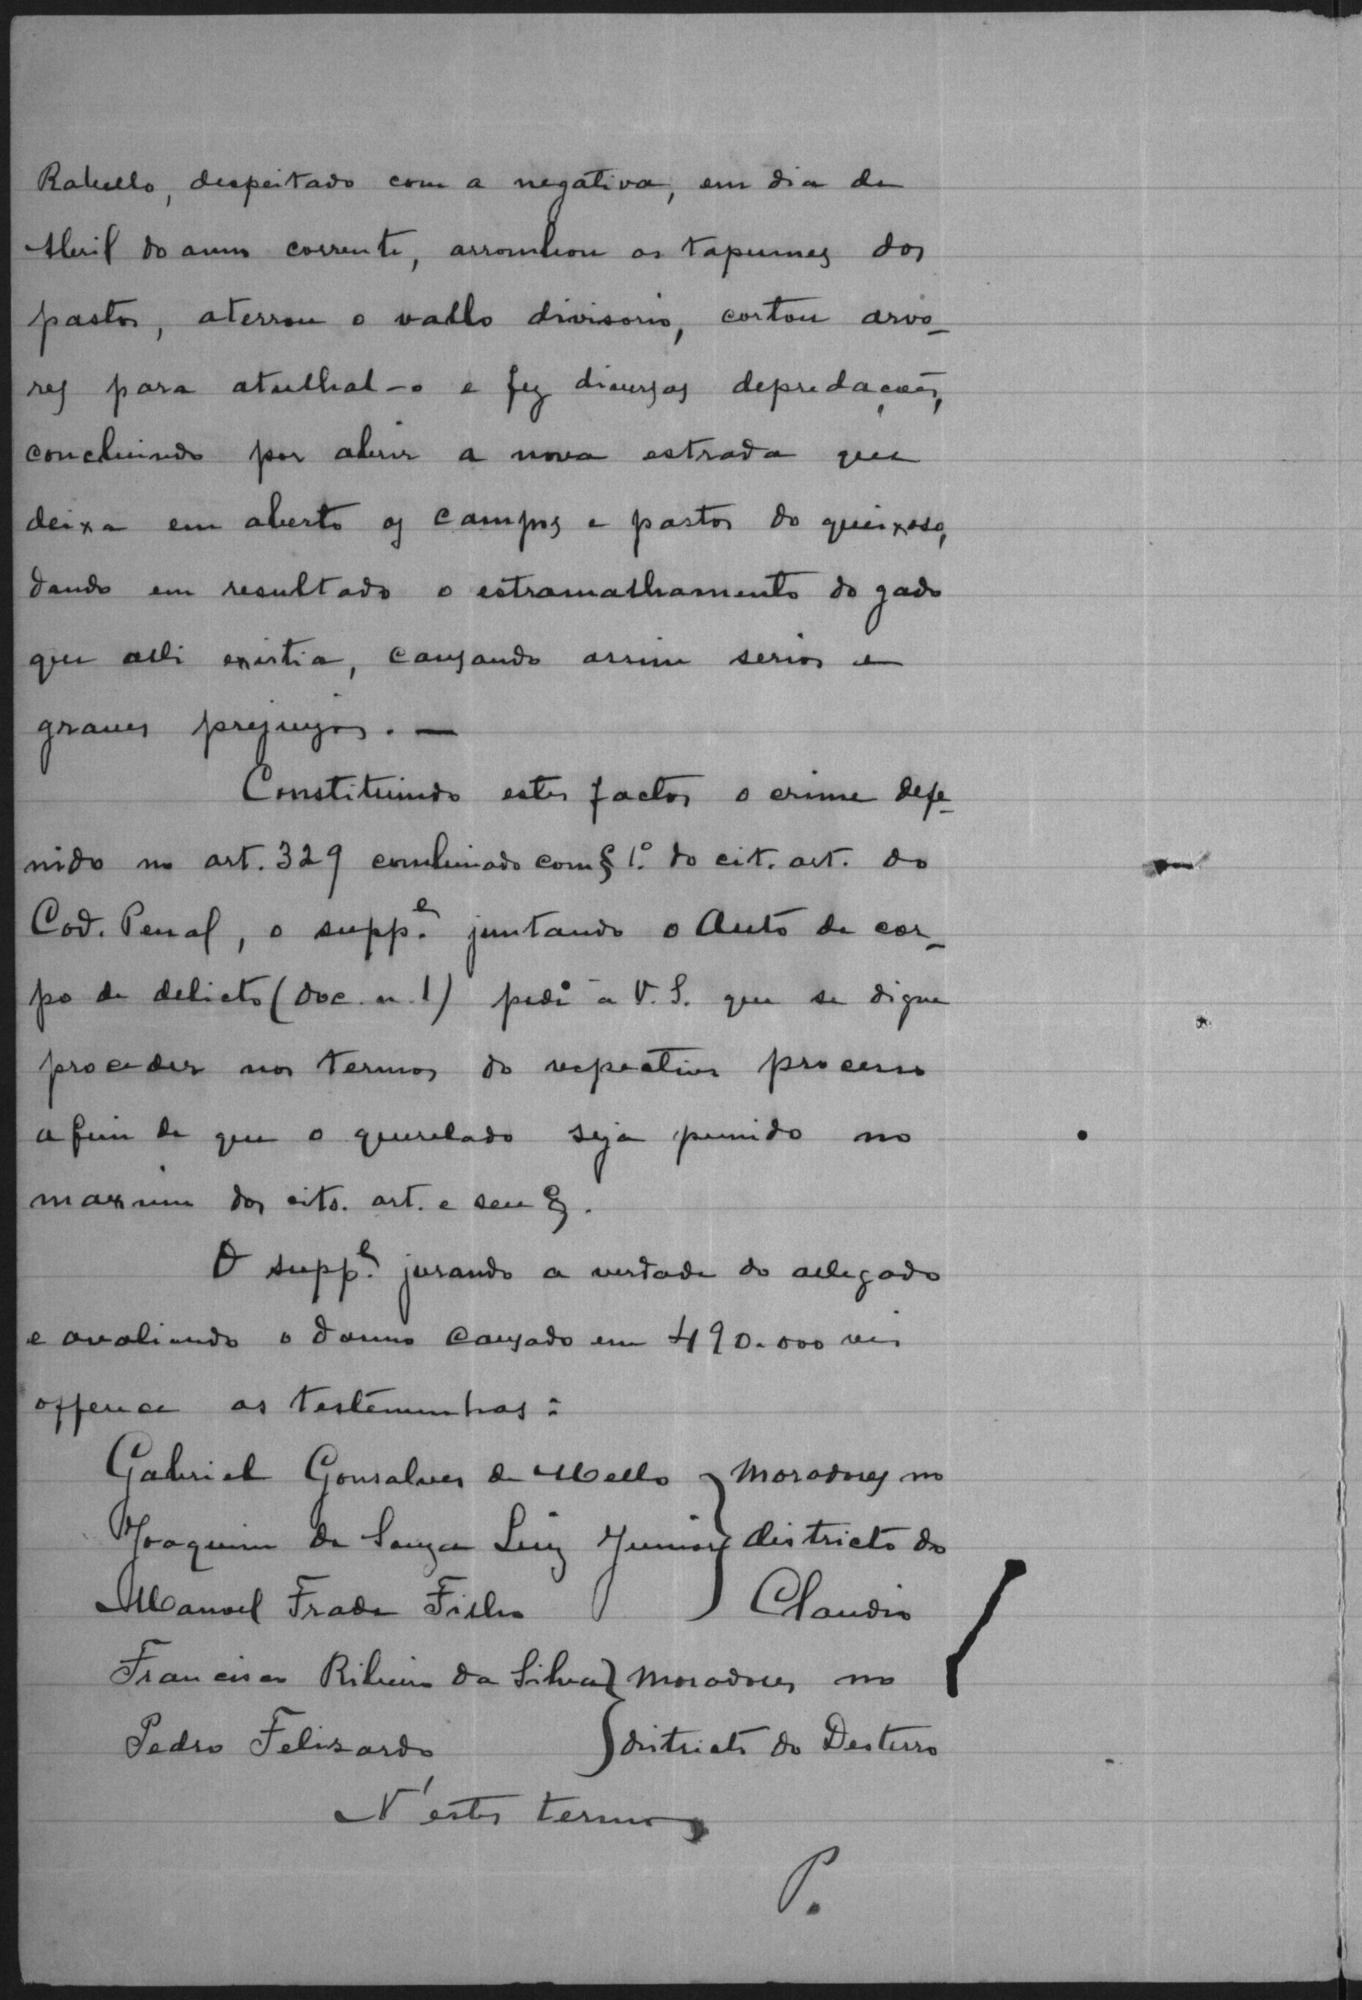 Rabello, despeitado com a negativa, em dia de
Abril do anno corrente, arrombou os tapumes dos
pastos, aterrou o vallo divisorio, cortou arvo-
res para atulhal-o e fez diversas depredações,
concluindo por abrir a nova estrada que
deixa em aberto os campos e pastos do queixoso,
dando em resultado o estramalhamento do gado
que alli existia, causando assim serios e
graves prejuizos. —
Constituindo estes factos o crime defe-
nido no art. 329 combinado com § 1.º do cit. art. do
Cod. Penal, o supp.e juntando o Auto de cor-
po de delicto (doc. n. 1) pede a V. S. que se digne
proceder nos termos do respectivo processo
afim de que o querelado seja punido no
maximo dos cits. art. e seu §.
O supp.e jurando a verdade do allegado
e avaliando o damno causado em 490.000 reis
offerece as testemunhas:
Gabriel Gonsalves de Mello } moradores no
Joaquim de Souza Luiz Junior } districto do
Manoel Frade Filho } Claudio
Francisco Ribeiro da Silva } moradores no
Pedro Felizardo } districto do Desterro
N'estes termos
P.